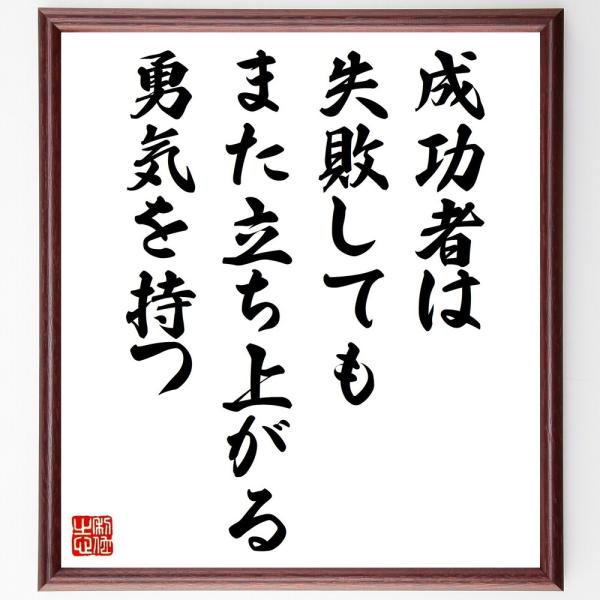 成功者は
失敗しても
また立ち上がる
勇気を持つ